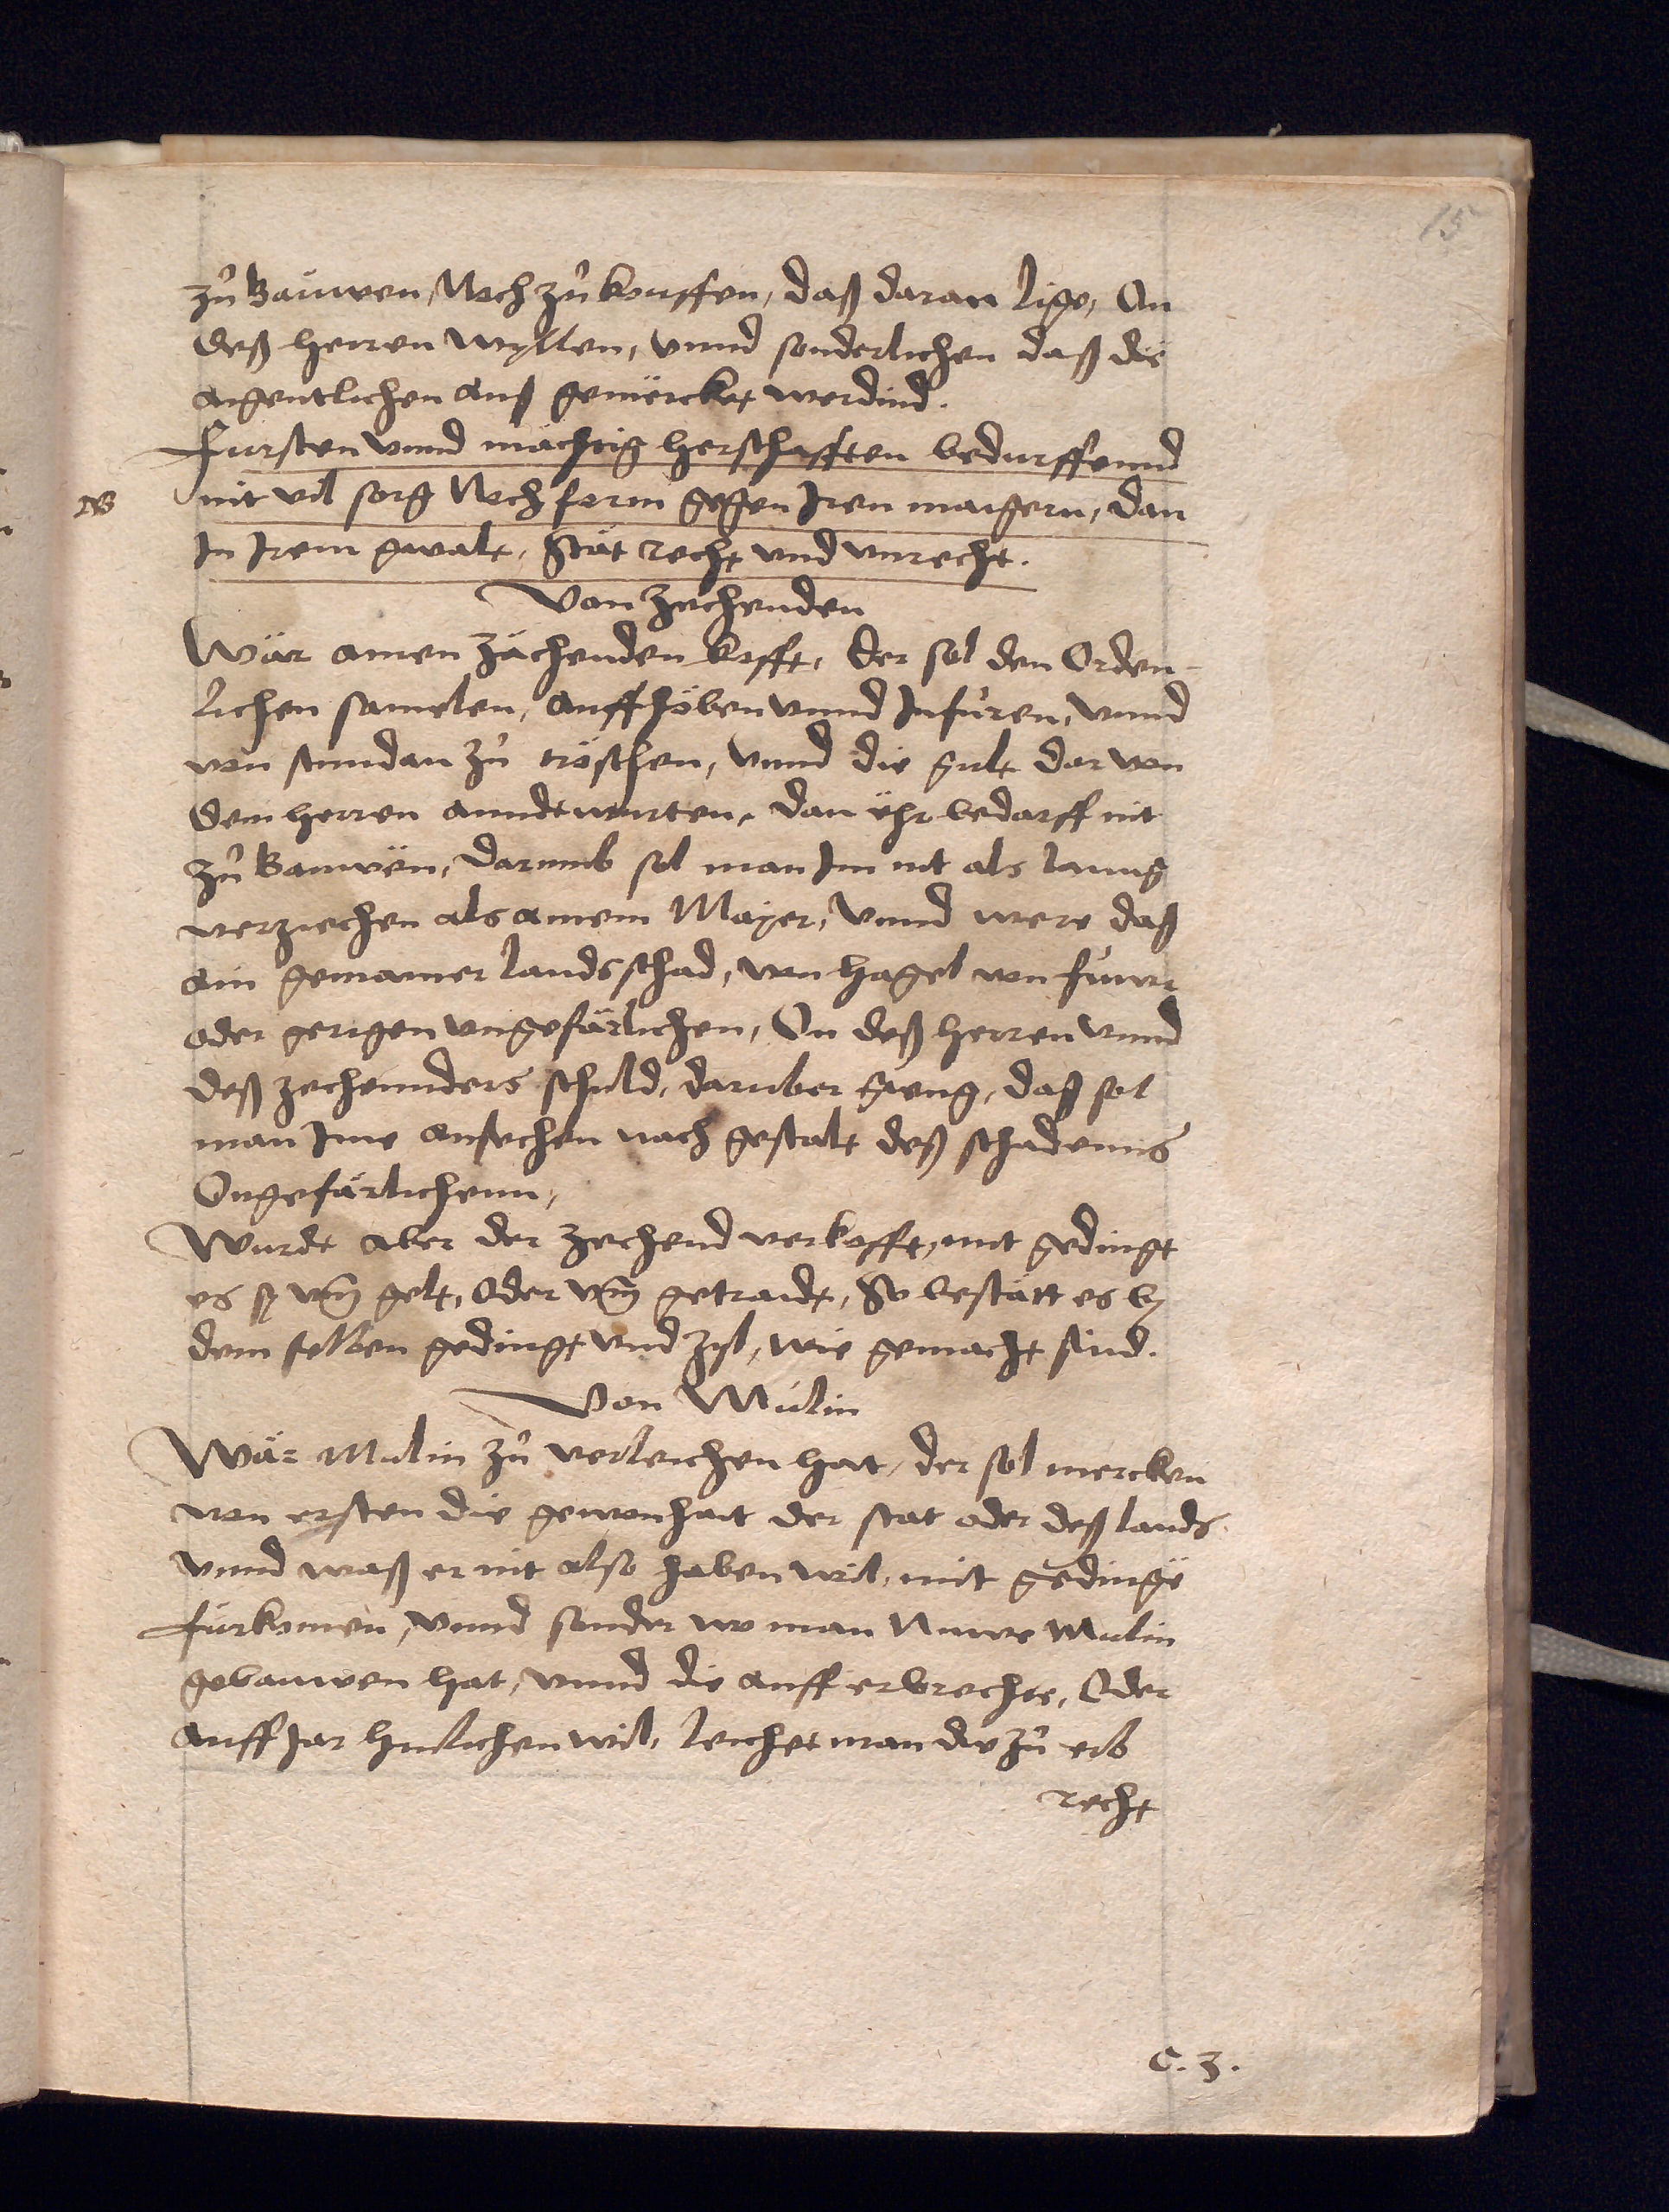 15
zů Bauwen, Noch zů kouffen, daß daran lige, On
deß herren wyllen, vnnd sonderlichen daß die
aigentlichen auß gemerckt werdind.
Fursten vnnd mächtig herschafften bedurffennd
NB
nit vil sorg Noch form gegen Iren maigern, dan
In Irem gwalt, Stat recht vnd vnrecht.
Von Zechenden
Wär ainen Zächenden kofft, der sol den Orden-
lichen samelen, auffhöben vnnd Infůren, vnnd
von stundan zů tröschen, vnnd die gult dar von
dem herren anndtwurten, dan ehr bedarff nit
zů Bauwen, darumb sol man Im nit als lanng
verziechen als ainem Mayer, Vnnd were daß
ain gemainer landsschad, von hagel von fuwr
oder gerigen vngefärlichen, On deß herren vnnd
deß zechennders schuld, daruber gieng, daß sol
man Ime ansechen nach gestalt deß schadenns
Ongefärlichenn,
Wurdt aber der Zechend verkofft, mit gedingt
es sy vm gelt, Oder vm getraidt, So bestatt es by
dem selben gedingt vnd zyl, wie gemacht sind.
Von Mulin
Wär Mulin zů verleichen hat, der sol mercken
von ersten die gewonhait der stat oder deß lands.
vnnd waß er nit also haben wil, mit gedinge
furkomen, vnnd sonder wo man Nuwe Mulin
gebauwen hat, vnnd die auff erbrechte, Oder
auff Jar hinlichen wil, leichet man die zů erb
recht
C. 3.